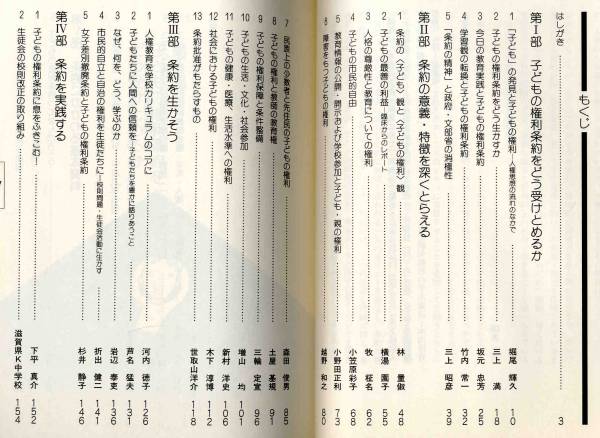 もくじ
はしがき 3
第Ⅰ部 子どもの権利条約をどう受けとめるか
1 「子ども」の発見と子どもの権利―人権思想の流れのなかで 堀尾 輝久 10
2 子どもの権利条約をどう生かすか 三上 満 18
3 今日の教育実践と子どもの権利条約 坂元 忠芳 25
4 学習観の転換と子どもの権利条約 竹内 常一 32
5 「条約の精神」と政府・文部省の消極性 三上 昭彦 39
第Ⅱ部 条約の意義・特徴を深くとらえる
1 条約の〈子ども〉観と〈子どもの権利〉観 林 量俶 48
2 子どもの最善の利益―臨床からのレポート 横湯 園子 55
3 人格の尊厳性と教育についての権利 牧 柾名 62
4 子どもの市民的自由 小笠原彩子 68
5 教育情報の公開・開示および学校参加と子ども・親の権利 小野田正利 73
6 障害をもつ子どもの権利 越野 和之 80
7 民族上の少数者と先住民の子どもの権利 森田 俊男 85
8 子どもの権利と教師の教育権 土屋 基規 91
9 子どもの権利保障と条件整備 三輪 定宣 96
10 子どもの生活・文化・社会参加 増山 均 101
11 子どもの健康・医療、生活水準への権利 新村 洋史 106
12 社会における子どもの権利 木下 淳博 112
13 条約批准がもたらすもの 世取山洋介 118
第Ⅲ部 条約を生かそう
1 人権教育を学校カリキュラムのコアに 河内 徳子 126
2 子どもたちに人間への信頼を―子どもたちを豊かに語りあうこと 芦名 猛夫 131
3 なぜ、何を、どう、学ぶのか 岩辺 泰吏 136
4 市民的自立と自治の権利を生徒たちに―校則問題・生徒会活動に生かす 折出 健二 141
5 女子差別撤廃条約と子どもの権利条約 杉井 静子 146
第Ⅳ部 条約を実践する
1 子どもの権利条約に息をふきこむ! 下平 真介 152
2 生徒会の校則改正の取り組み 滋賀県K中学校 154